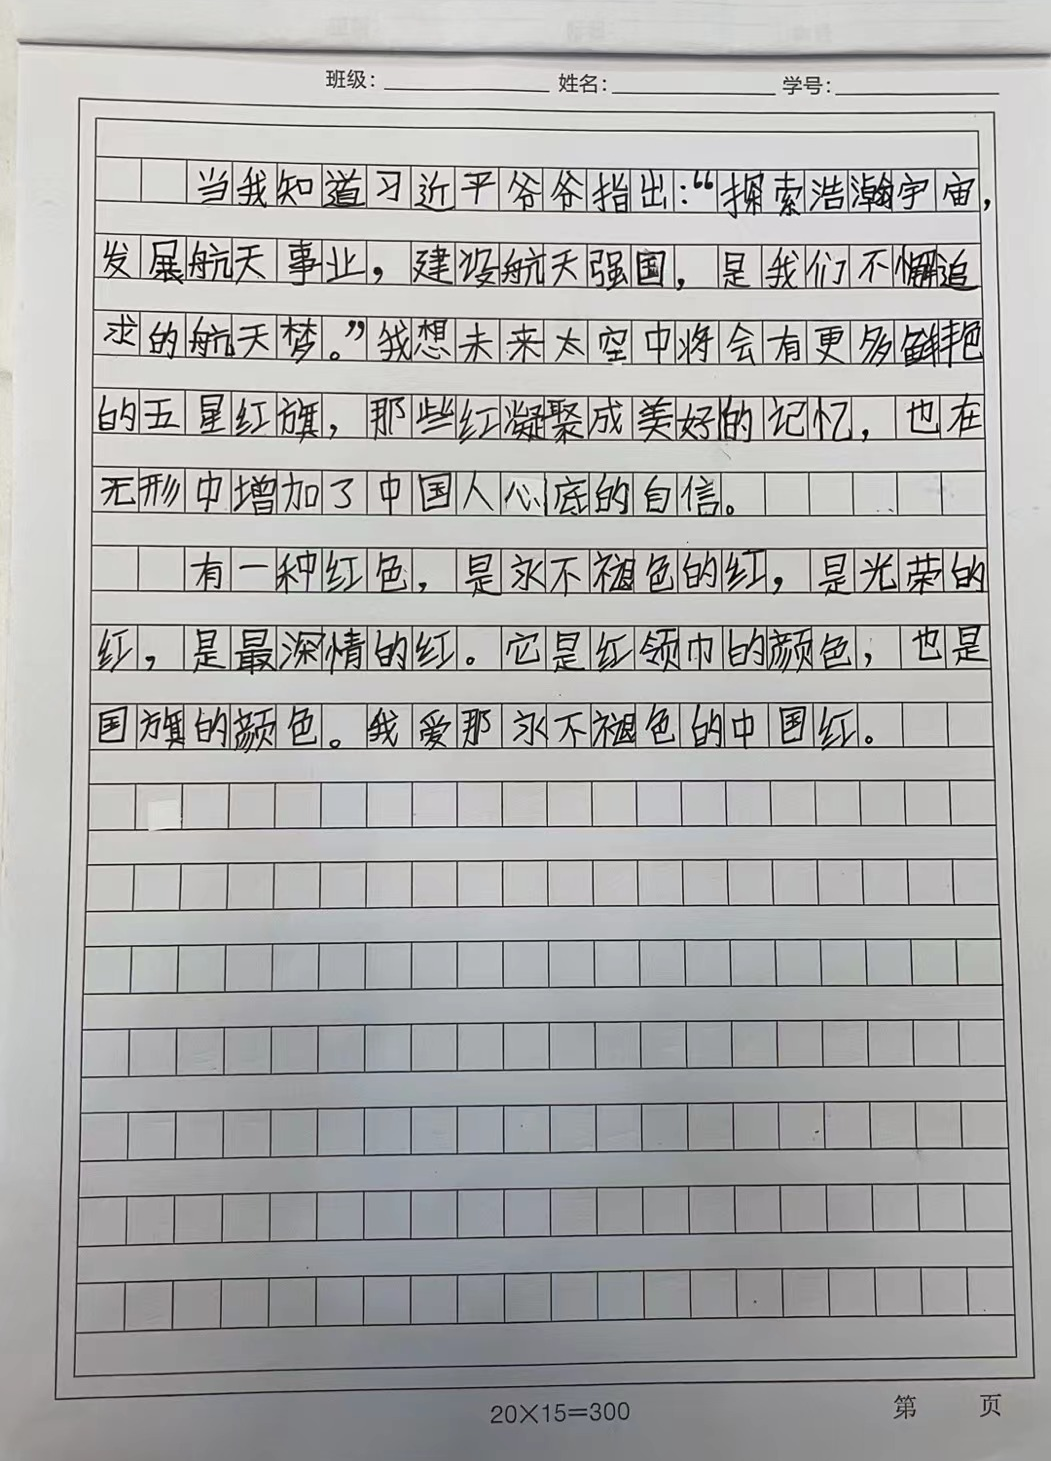 班级： 姓名： 学号：
当我知道习近平爷爷指出：“探索浩瀚宇宙，
发展航天事业，建设航天强国，是我们不懈追
求的航天梦。”我想未来太空中将会有更多鲜艳
的五星红旗，那些红凝聚成美好的记忆，也在
无形中增加了中国人心底的自信。
有一种红色，是永不褪色的红，是光荣的
红，是最深情的红。它是红领巾的颜色；也是
国旗的颜色。我爱那永不褪色的中国红。
20×15=300
第 页